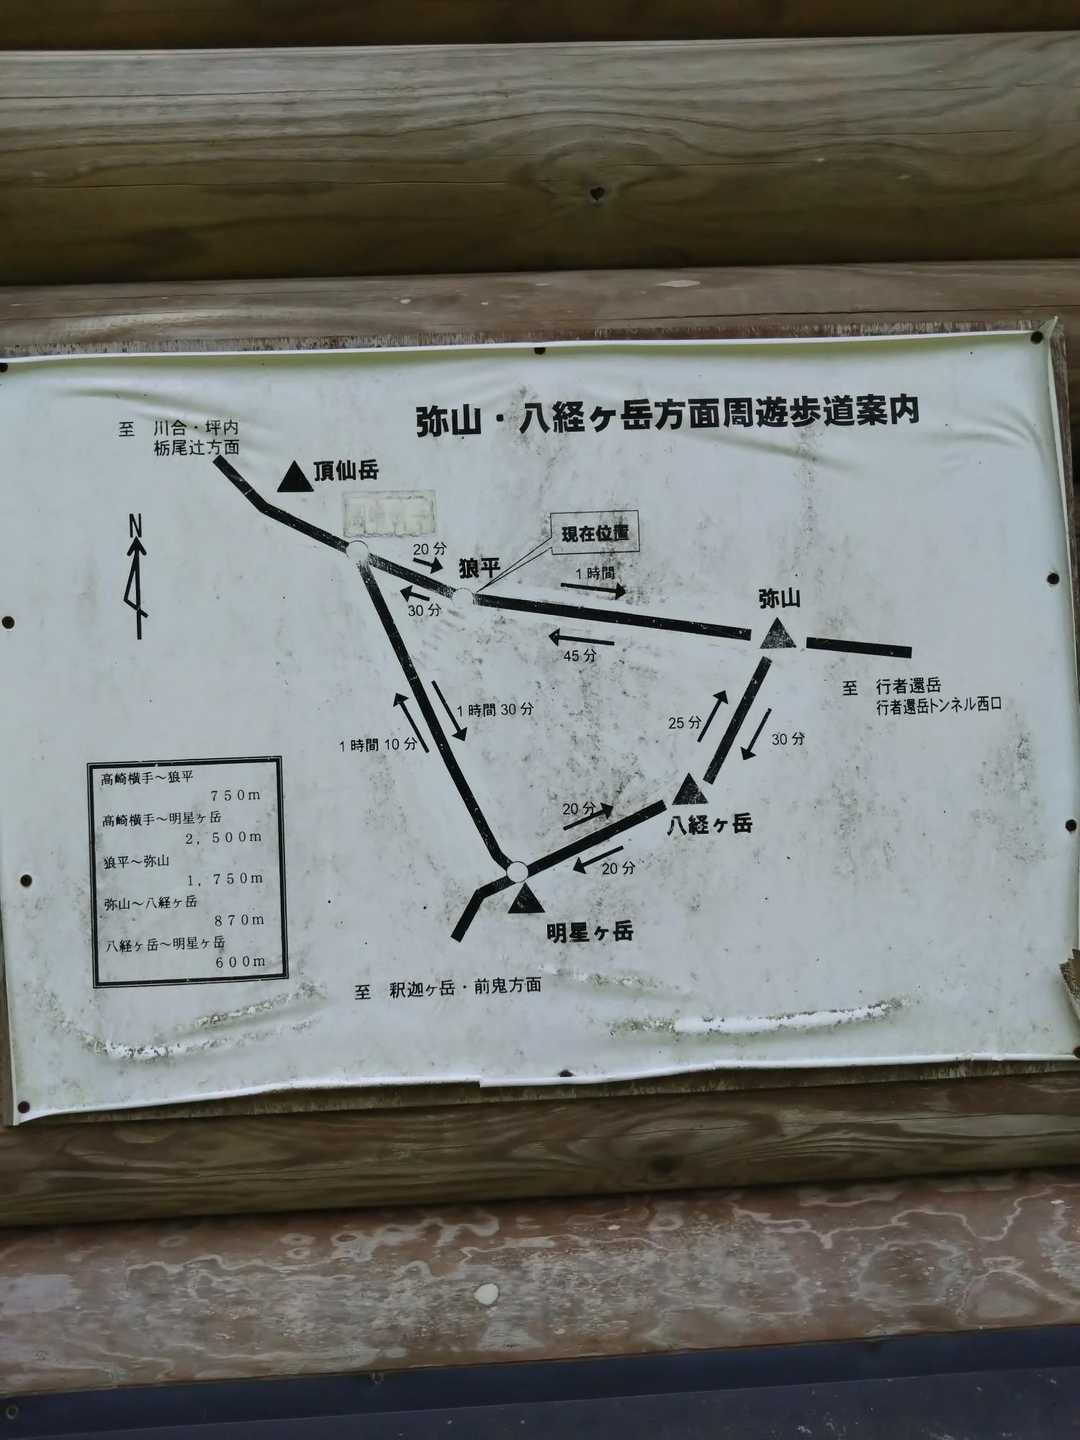 弥山・八経ヶ岳方面周遊歩道案内
至 川合・坪内
栃尾辻方面
頂仙岳
N
現在位置
20分
狼平
30分
1時間
45分
弥山
至 行者還岳
行者還岳トンネル西口
1時間30分
1時間10分
25分
30分
20分
八経ヶ岳
20分
明星ヶ岳
至 釈迦ヶ岳・前鬼方面
高崎横手～狼平
750m
高崎横手～明星ヶ岳
2,500m
狼平～弥山
1,750m
弥山～八経ヶ岳
870m
八経ヶ岳～明星ヶ岳
600m